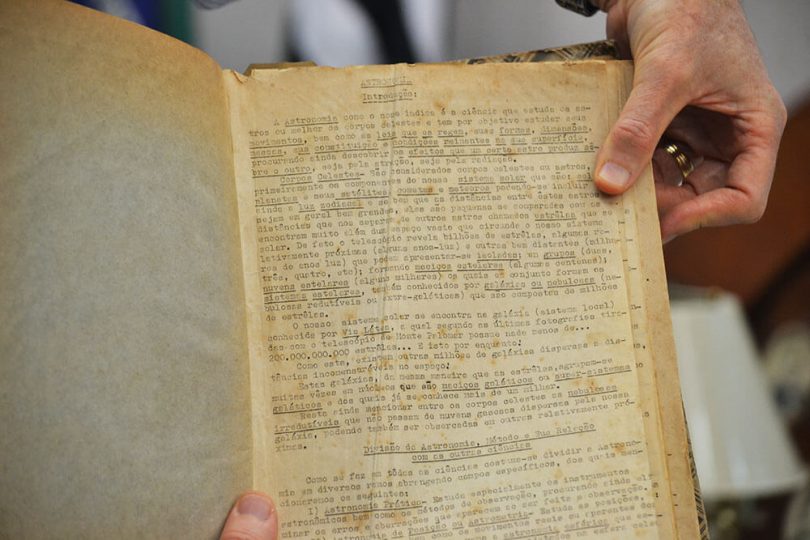 ASTRONOMIA
Introdução:
A Astronomia como o nome indica é a ciência que estuda os as-
tros ou melhor os corpos celestes e tem por objetivo estudar seus
movimentos, bem como as leis que os regem, suas formas, dimensões,
massas, sua constituição e condições reinantes na sua superfície,
procurando ainda descobrir os efeitos que um certo astro produz sô-
bre o outro, seja pela atração, seja pela radiação.
Corpos Celestes- São considerados corpos celestes ou astros,
primeiramente os componentes do nosso sistema solar que são: sol
planetas e seus satélites; cometas e meteoros podendo-se incluir
ainda a luz zodiacal e se bem que as distâncias entre êstes astros
sejam em geral bem grandes, elas são pequenas se comparadas com as
distâncias que nos separam de outros astros chamados estrêlas que se
encontram muito além dum espaço vasio que circunda o nosso sistema
solar. De fato o telescópio revela bilhões de estrêlas, algumas re-
lativamente próximas (alguns anos-luz) e outros bem distantes (milha-
res de anos luz) que podem apresentar-se isoladas; em grupos (duas,
três, quatro, etc); formando maciços estelares (algumas centenas);
nuvens estelares (alguns milhares) os quais em conjunto formam os
sistemas estelares, também conhecidos por galáxias ou nebulosas (ne-
bulosas redutíveis ou extra-galáticas) que são compostas de milhões
de estrêlas.
O nosso sistema solar se encontra na galáxia (sistema local)
conhecida por Via Látea, a qual segundo as últimas fotografias tira-
das com o telescópio de Monte Palomar possue nada menos de...
200.000.000.000 estrêlas... E isto por enquanto!
Como esta, existem outras milhões de galáxias dispersas a dis-
tâncias incomensuráveis no espaço!
Estas galáxias, da mesma maneira que as estrêlas, agrupam-se
muitas vêzes em núcleos que são maciços galáticos ou super-sistemas
galáticos e dos quais já se conhece mais de um milhar.
Resta ainda mencionar entre os corpos celestes as nebulosas
irredutíveis que não passam de nuvens gasosas dispersas pela nossa
galáxia, podendo também ser observadas em outras relativamente pró-
ximas.
Divisão da Astronomia, Método e Sua Relação
com as outras ciências
Como se faz em tôdas as ciências costuma-se dividir a Astrono-
mia em diversos ramos abrangendo campos específicos, dos quais men-
cionaremos os seguintes:
1) Astronomia Prática- Estuda especialmente os instrumentos
astronômicos bem como os métodos de observação, procurando ainda eli-
minar os erros e aberrações que aparecem ao ser feita a observação.
de Posição ou Astrometria- Estuda as posições,
como os movimentos reais ou aparentes dos
astronomia esférica que